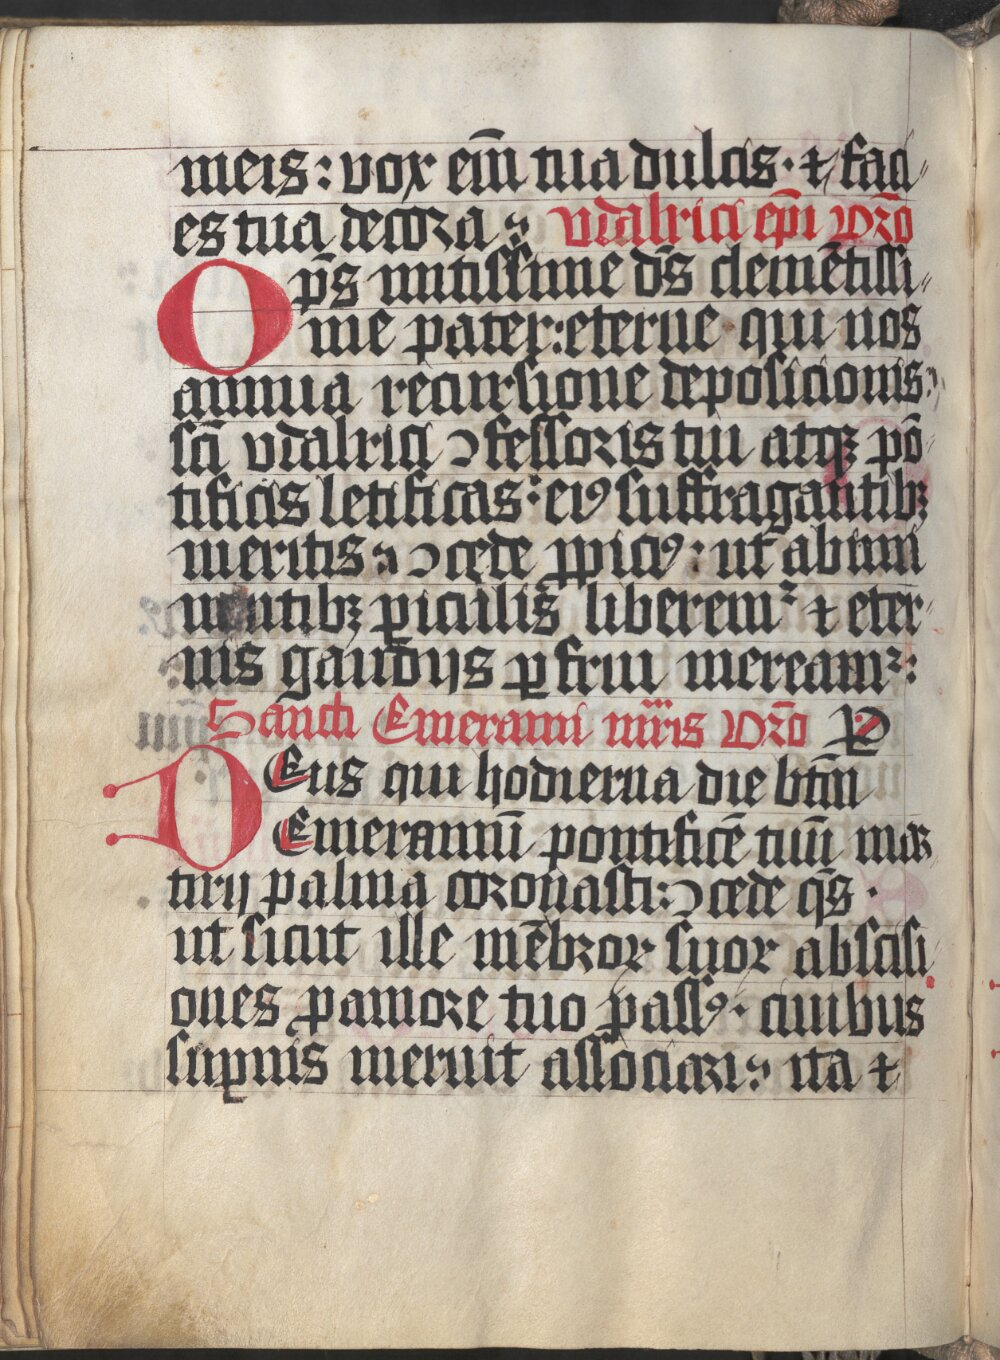 meis: vox em̄ tua dulcis · ⁊ faci
es tua decora ; Vdalrici ep̄i Or̄o
Op̄s mitissime d̄s clemētissi
me pater: eterne qui nos
annua recursione deposicionis:
sc̄i vdalrici ↄfessoris tui atqꝫ pō
tificis letificas: eiꝰ suffragantibꝫ
meritis ; ↄcede ꝓpiciꝰ: ut ab im̄i
nentibꝫ ꝑiculis liberem᷑ ⁊ eter
nis gaudijs ꝑfrui meream᷑:
Sancti Emerammi mr̄is Or̄o P
DEus qui hodierna die btm̄
Emerammū pontificē tuū mar
tirij palma coronasti: ↄcede q̄s ·
ut sicut ille mēbror suor abscisi
ones ꝓ amore tuo passꝰ · ciuibus
suꝑnis meruit associari ; ita ⁊